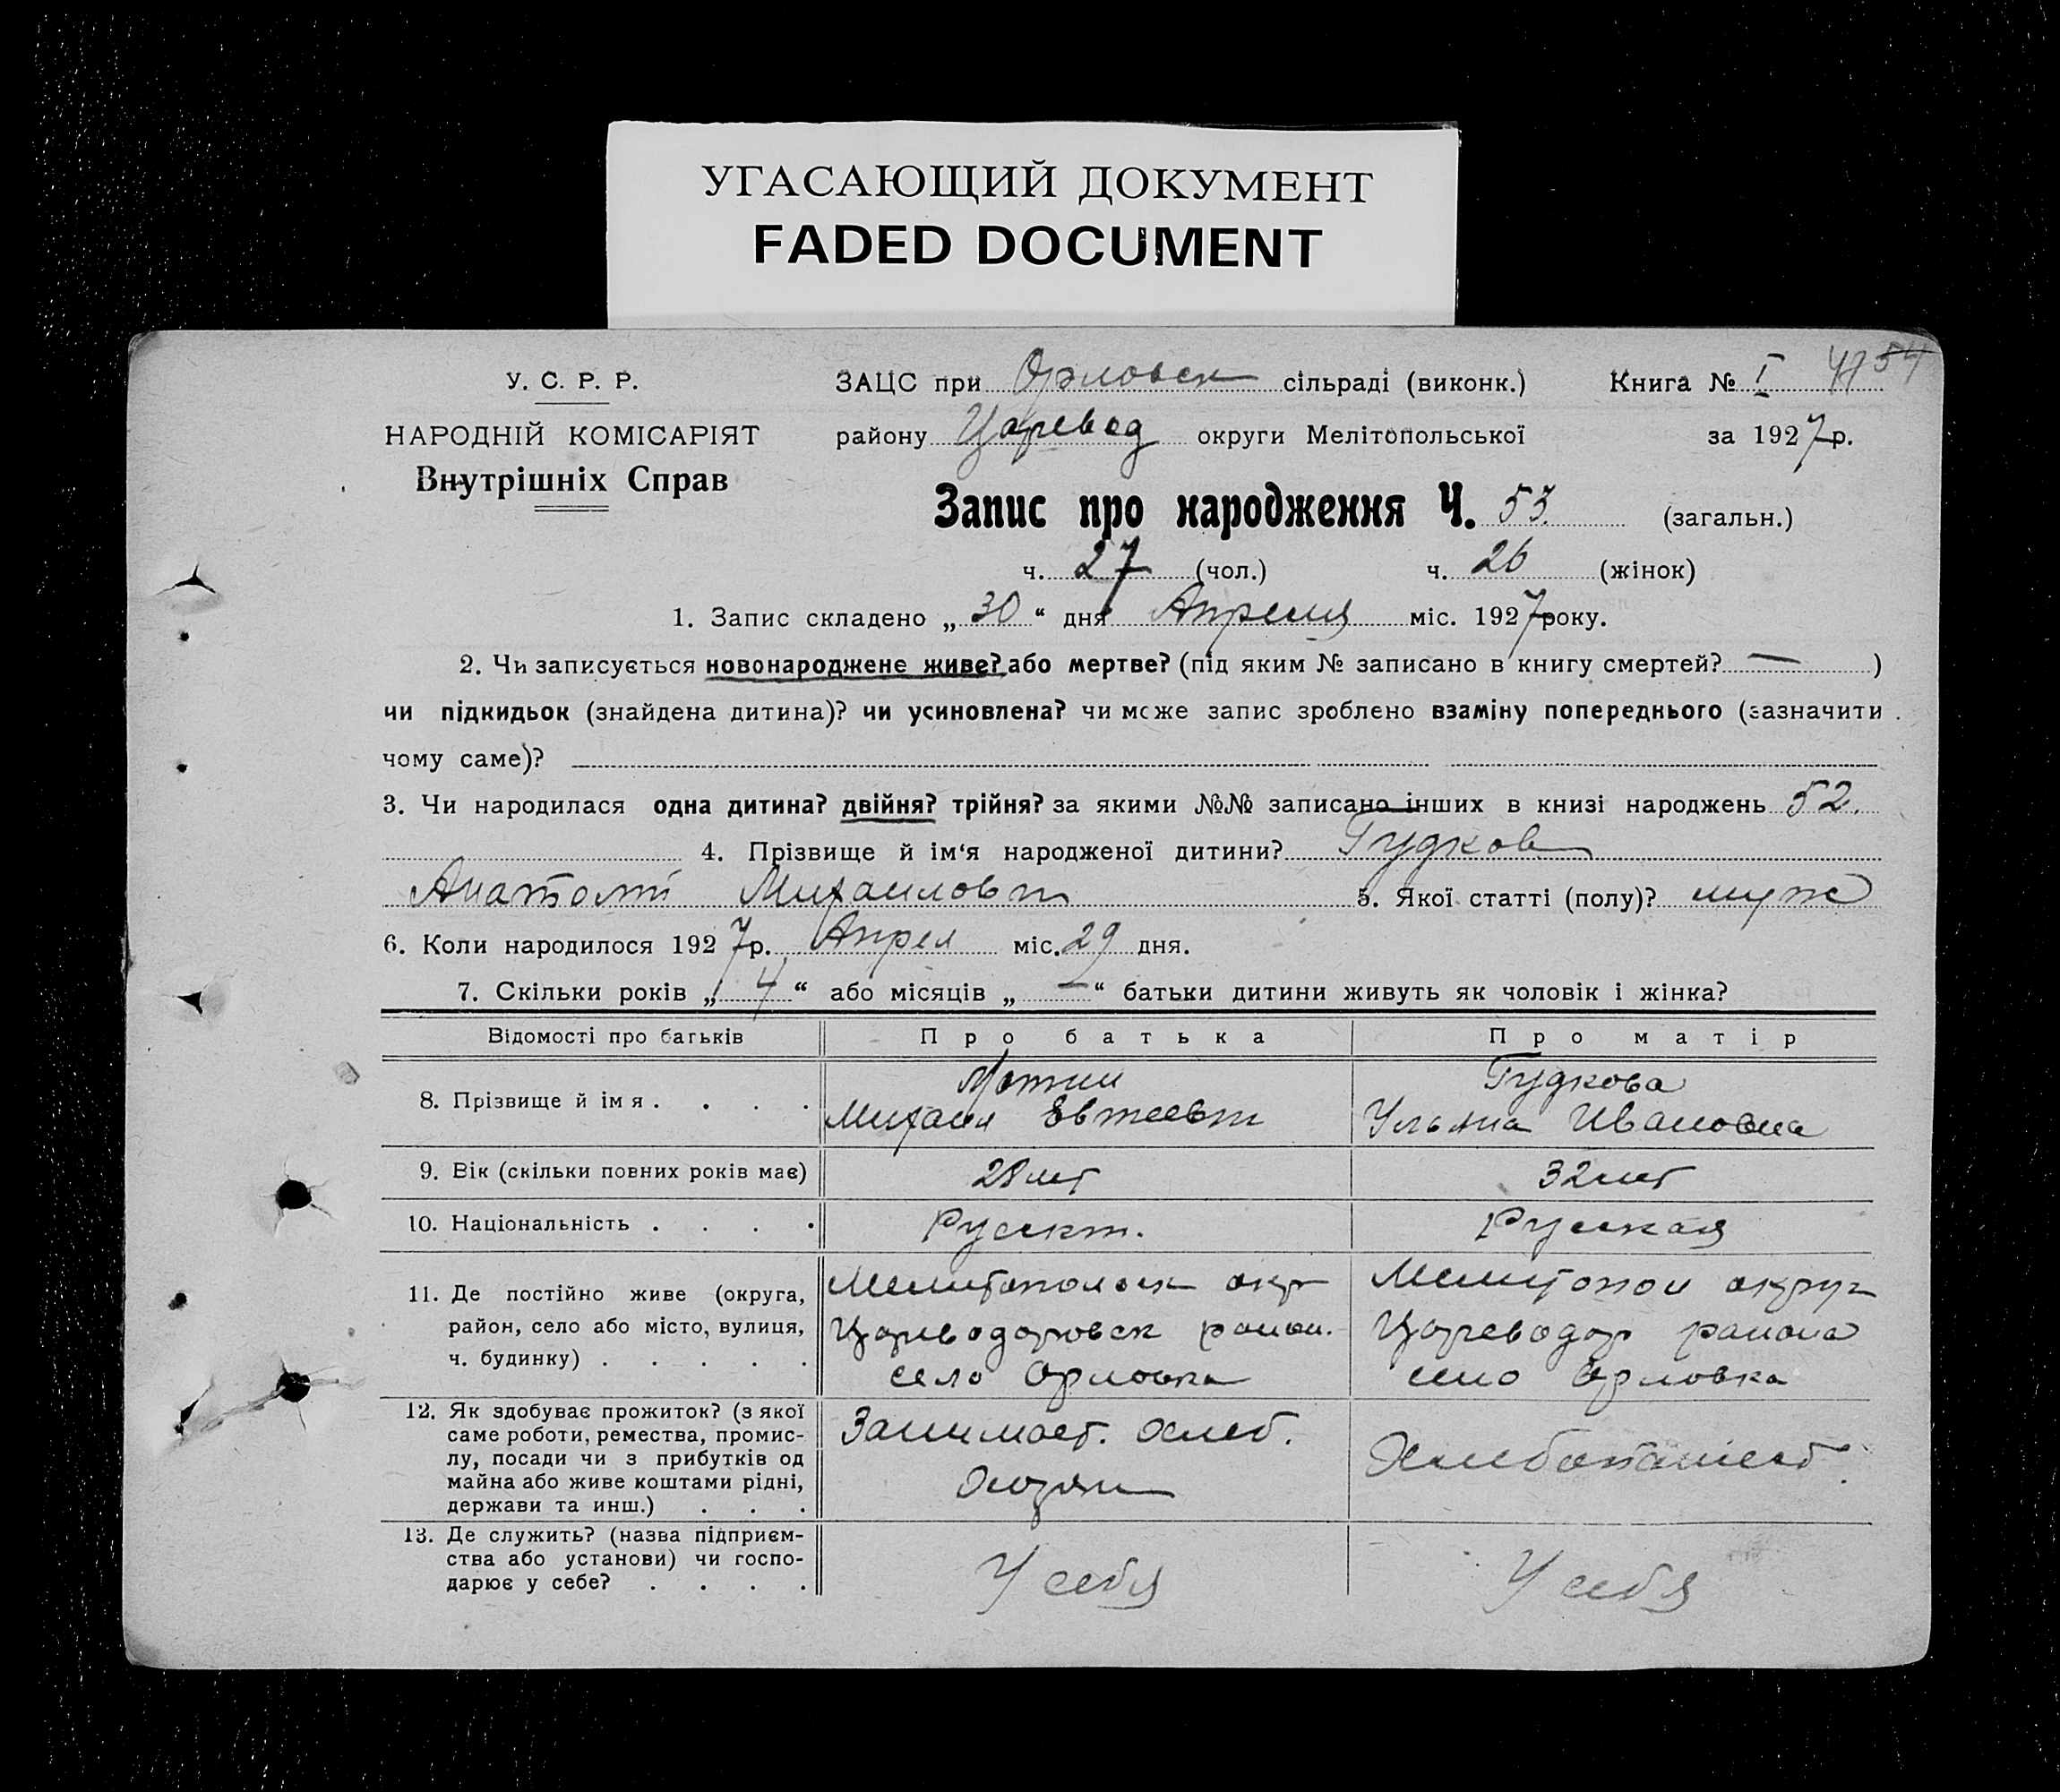 УГАСАЮЩИЙ ДОКУМЕНТ
FADED DOCUMENT
У. С. Р. Р.
НАРОДНІЙ КОМІСАРІЯТ
Внутрішніх Справ
ЗАЦС при Орловск сільраді (виконк.) Книга № I 54
району Царевод округи Мелітопольської за 1927 р.
Запис про народження Ч. 53. (загальн.)
ч. 27 (чол.) ч. 26 (жінок)
1. Запис складено „ 30 “ дня Апреля міс. 1927 року.
2. Чи записується новонароджене живе? або мертве? (під яким № записано в книгу смертей? — )
чи підкидьок (знайдена дитина)? чи усиновлена? чи може запис зроблено взаміну попереднього (зазначити
чому саме)?
3. Чи народилася одна дитина? двійня? трійня? за якими №№ записано інших в книзі народжень 52.
4. Прізвище й ім‘я народженої дитини? Гудков
Анатолий Михаилович 5. Якої статті (полу)? муж
6. Коли народилося 1927 р. Апрел міс. 29 дня.
7. Скільки років „ 4 “ або місяців „ — “ батьки дитини живуть як чоловік і жінка?
Відомості про батьків Про батька Про матір
8. Прізвище й ім я . . . .
Михаил Евтеевич
Гудкова
Ульяна Ивановна
9. Вік (скільки повних років має) 28 лет 32 лет
10. Національність . . . . Руский. Руская
11. Де постійно живе (округа,
район, село або місто, вулиця,
ч. будинку) . . . . .
Мелитопольск окр
Цареводаровск район.
село Орловка
Мелитопол округ
Цареводар района
село Орловка
12. Як здобуває прожиток? (з якої
саме роботи, ремества, промис-
лу, посади чи з прибутків од
майна або живе коштами рідні,
держави та инш.) . . .
Занимает. хлеб.
Хлебопашест.
13. Де служить? (назва підприєм-
ства або установи) чи госпо-
дарює у себе? . . . .
У себя
У себя